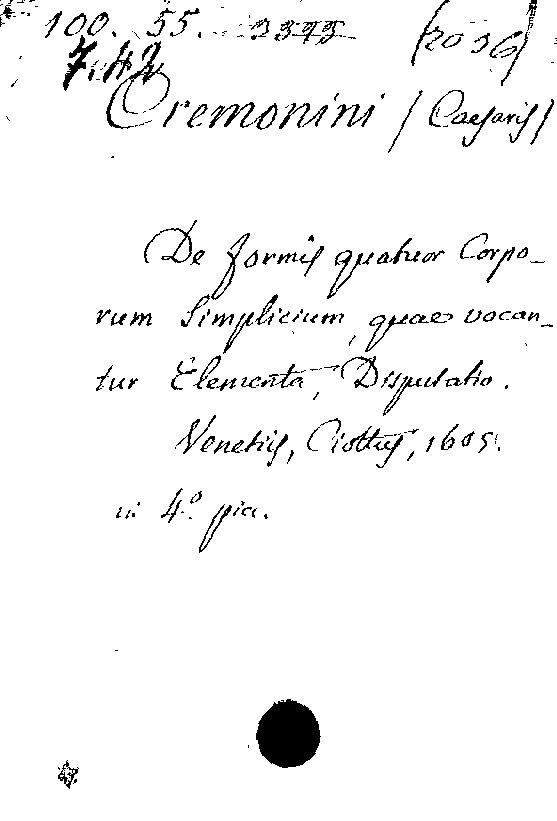 100. 55. 3373 (2036)
7.42
Cremonini (Caesaris)
De formis quatuor Corpo-
rum Simplicium, quae vocan-
tur Elementa, Disputatio.
Venetiis, Ciottus, 1605.
in 4.º pic.